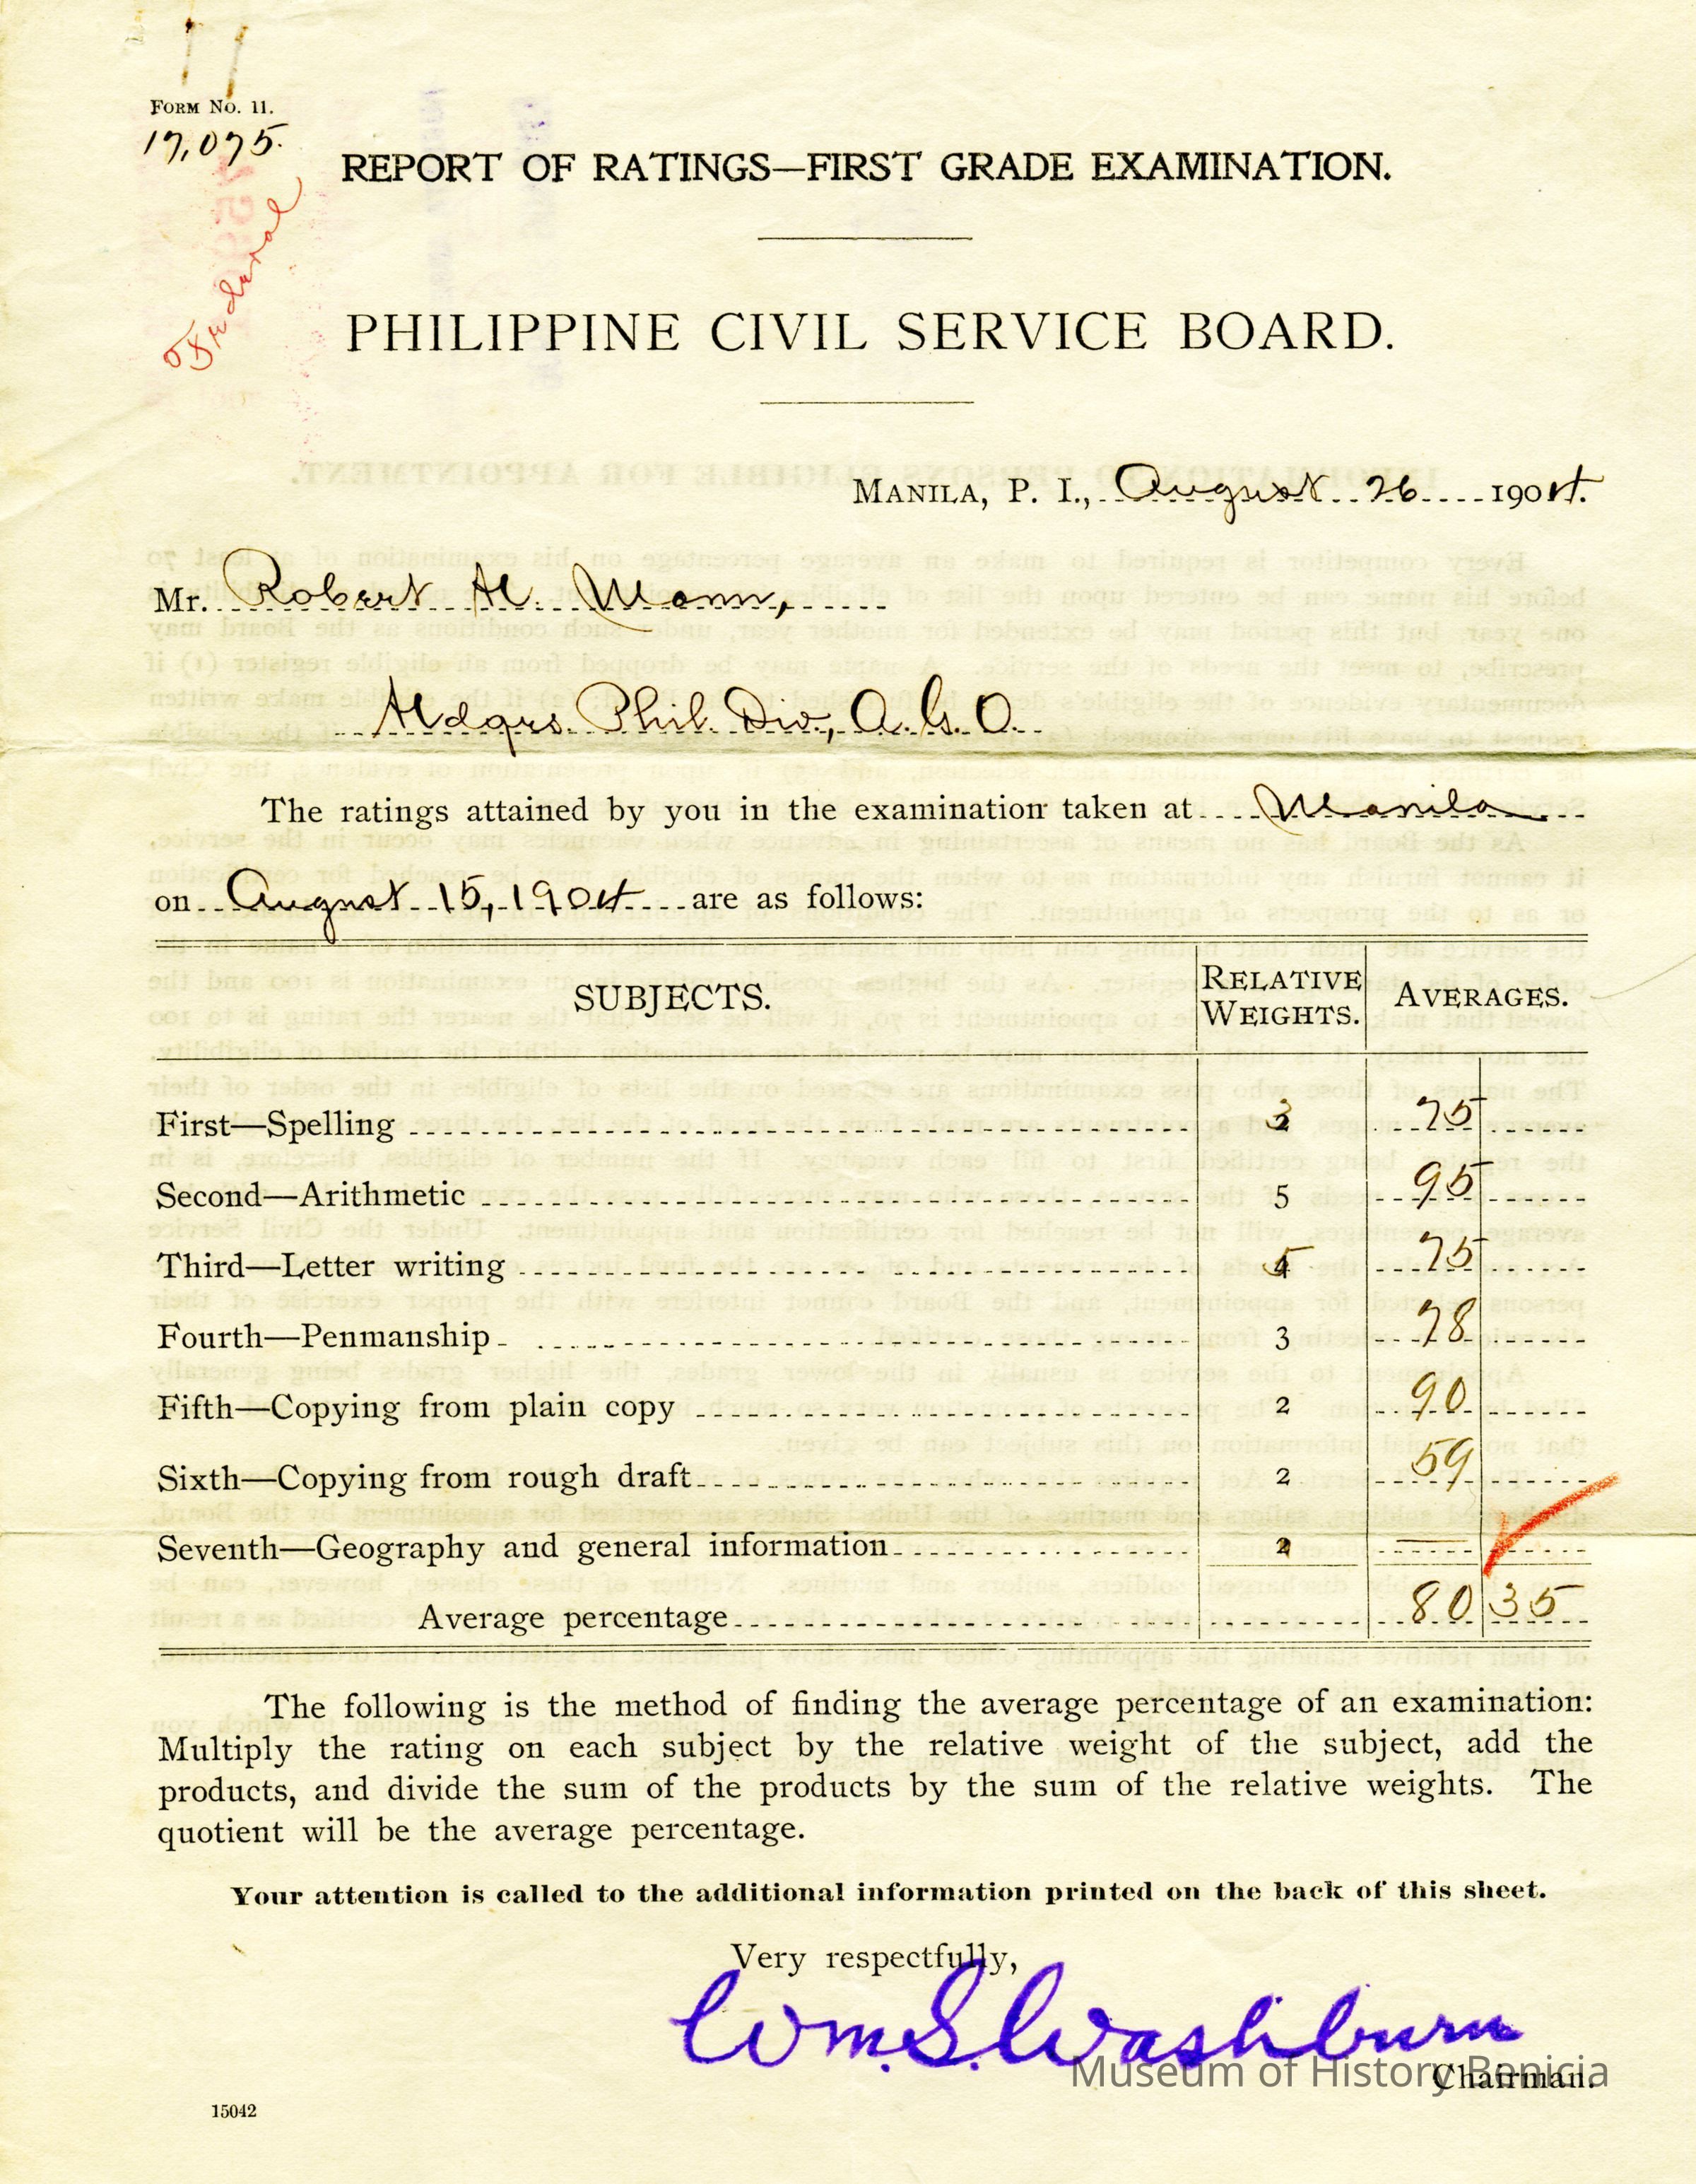 FORM NO. 11.
17,075.
Federal
REPORT OF RATINGS—FIRST GRADE EXAMINATION.
PHILIPPINE CIVIL SERVICE BOARD.
MANILA, P. I., August 26 1904.
Mr. Robert H. Mann,
Hdqrs. Phil. Div., A.G.O.
The ratings attained by you in the examination taken at Manila
on August 15, 1904 are as follows:
SUBJECTS. RELATIVE WEIGHTS. AVERAGES.
First—Spelling 3 75
Second—Arithmetic 5 95
Third—Letter writing 5 75
Fourth—Penmanship 3 78
Fifth—Copying from plain copy 2 90
Sixth—Copying from rough draft 2 59
Seventh—Geography and general information 2 —
Average percentage 80 35
The following is the method of finding the average percentage of an examination:
Multiply the rating on each subject by the relative weight of the subject, add the
products, and divide the sum of the products by the sum of the relative weights. The
quotient will be the average percentage.
Your attention is called to the additional information printed on the back of this sheet.
Very respectfully,
Wm. S. Washburn
Museum of History Benicia
Chairman.
15042